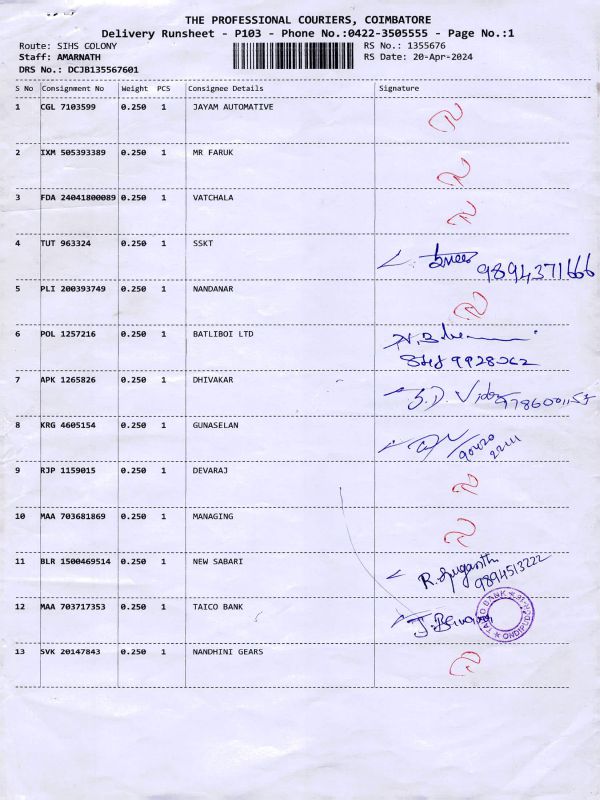 THE PROFESSIONAL COURIERS, COIMBATORE
Delivery Runsheet - P103 - Phone No.:0422-3505555 - Page No.:1
Route: SIHS COLONY RS No.: 1355676
Staff: AMARNATH RS Date: 20-Apr-2024
DRS No.: DCJB135567601
S No Consignment No Weight PCS Consignee Details Signature
1 CGL 7103599 0.250 1 JAYAM AUTOMATIVE
2 IXM 505393389 0.250 1 MR FARUK
3 FDA 24041800089 0.250 1 VATCHALA
4 TUT 963324 0.250 1 SSKT
9894371666
5 PLI 200393749 0.250 1 NANDANAR
6 POL 1257216 0.250 1 BATLIBOI LTD
7 APK 1265826 0.250 1 DHIVAKAR
8 KRG 4605154 0.250 1 GUNASELAN
90420
22111
9 RJP 1159015 0.250 1 DEVARAJ
10 MAA 703681869 0.250 1 MANAGING
11 BLR 1500469514 0.250 1 NEW SABARI
R. Suganthi
9894513222
12 MAA 703717353 0.250 1 TAICO BANK
TAICO BANK
13 SVK 20147843 0.250 1 NANDHINI GEARS